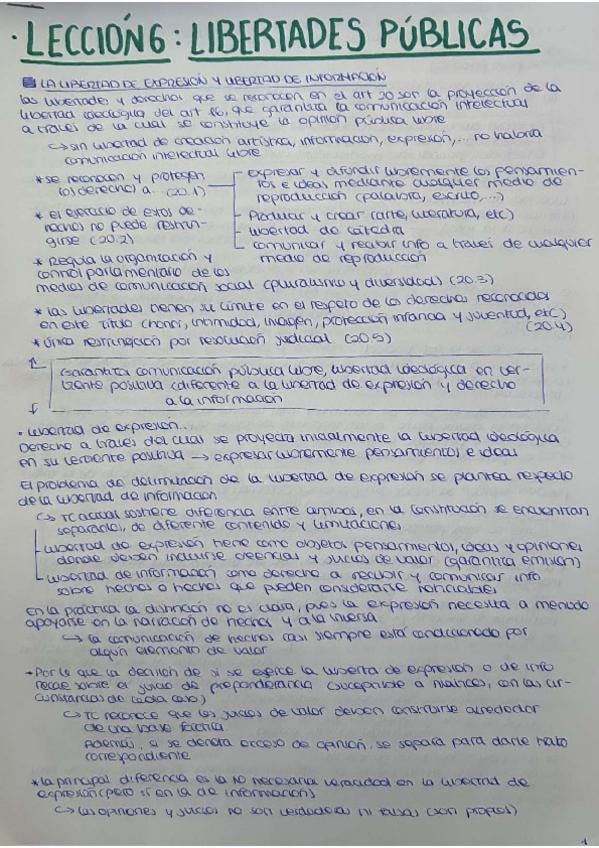 · LECCIÓN 6 : LIBERTADES PÚBLICAS
LA LIBERTAD DE EXPRESIÓN Y LIBERTAD DE INFORMACIÓN
las libertades y derechos que se reconocen en el art 20 son la proyección de la
libertad ideológica del art 16, que garantiza la comunicación intelectual
a través de la cual se constituye la opinión pública libre
↳ sin libertad de creación artística, información, expresión,... no habría
comunicación intelectual libre
* se reconocen y protegen
los derechos a... (20.1)
expresar y difundir libremente los pensamien-
tos e ideas mediante cualquier medio de
reproducción (palabra, escrito,...)
Producir y crear (arte, literatura, etc)
libertad de cátedra
comunicar y recibir info a través de cualquier
medio de reproducción
* el ejercicio de estos de-
rechos no puede restrin-
girse (20.2)
* Regula la organización y
control parlamentario de los
medios de comunicación social (pluralismo y diversidad) (20.3)
* las libertades tienen su límite en el respeto de los derechos reconocidos
en este Título (honor, intimidad, imagen, protección infancia y juventud, etc)
(20.4)
* única restricción por resolución judicial (20.5)
Garantiza comunicación pública libre, libertad ideológica en ver-
tiente positiva (diferente a la libertad de expresión y derecho
a la información
· libertad de expresión...
Derecho a través del cual se proyecta inicialmente la libertad ideológica
en su vertiente positiva → expresar libremente pensamientos e ideas
El problema de delimitación de la libertad de expresión se plantea respecto
de la libertad de información
↳ TC actual sostiene diferencia entre ambos, en la Constitución se encuentran
separados, de diferente contenido y limitaciones
libertad de expresión tiene como objetos pensamientos, ideas y opiniones
donde deben incluirse creencias y juicios de valor (garantiza emisión)
libertad de información como derecho a recibir y comunicar info
sobre hechos o hechos que pueden considerarse noticiables
En la práctica la distinción no es clara, pues la expresión necesita a menudo
apoyarse en la narración de hechos y a la inversa
↳ la comunicación de hechos casi siempre está condicionado por
algún elemento de valor
* Por lo que la decisión de si se ejerce la libertad de expresión o de info
recae sobre el juicio de preponderancia (susceptible a matices, con las cir-
cunstancias de cada caso)
↳ TC reconoce que los juicios de valor deben construirse alrededor
de una base fáctica.
Además, si se denota exceso de opinión, se separa para darle trato
correspondiente
* la principal diferencia es la NO necesaria veracidad en la libertad de
expresión (pero sí en la de información)
↳ las opiniones y juicios no son verdaderos ni falsos (son propios)
1